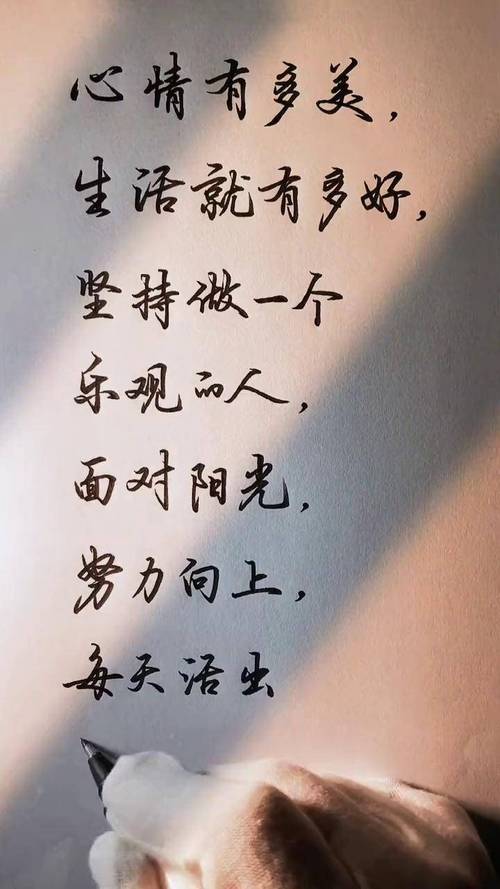 心情有多美，
生活就有多好，
坚持做一个
乐观的人，
面对阳光，
努力向上，
每天活出